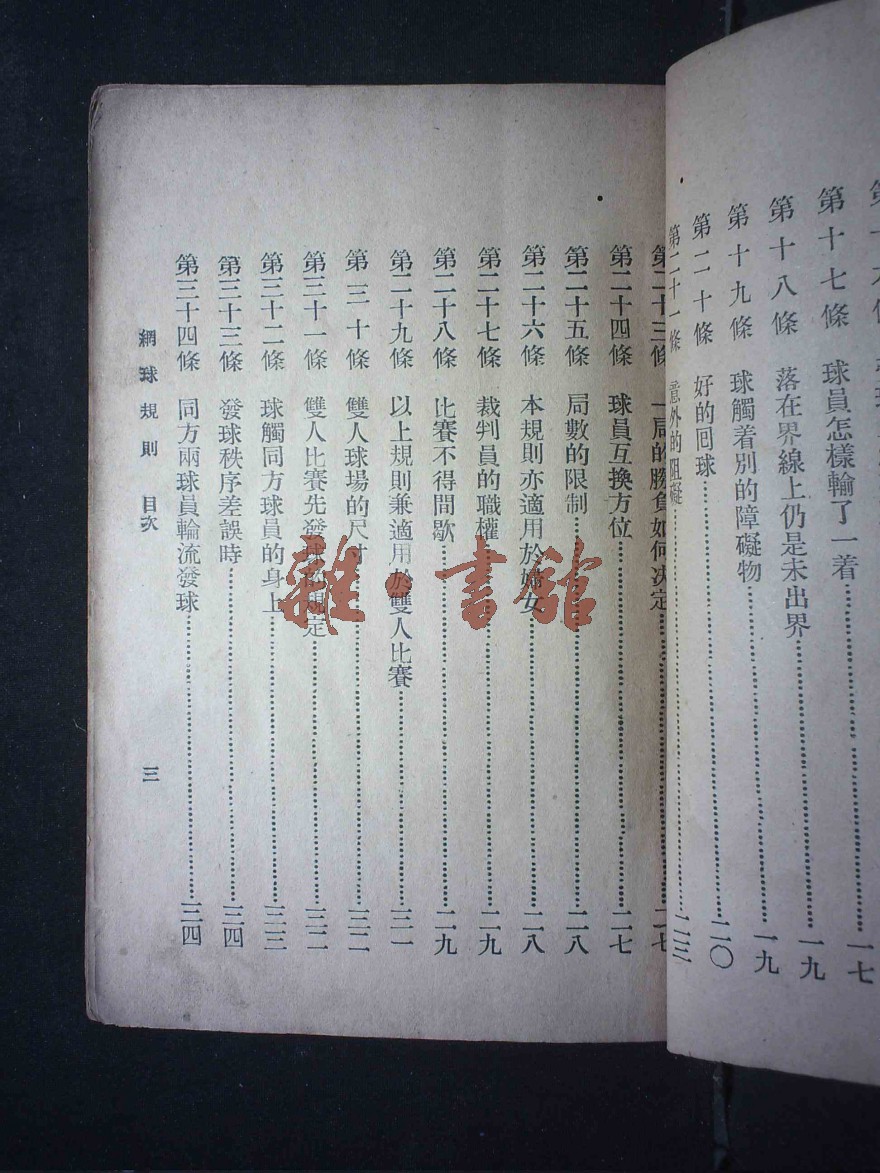 第十七條 球員怎樣輸了一着 一七
第十八條 落在界線上仍是未出界 一九
第十九條 球觸着別的障礙物 一九
第二十條 好的回球 二〇
第二十一條 意外的阻礙 二三
第二十三條 一局的勝負如何決定 二七
第二十四條 球員互換方位 二七
第二十五條 局數的限制 二八
第二十六條 本規則亦適用於婦女 二八
第二十七條 裁判員的職權 二九
第二十八條 比賽不得間歇 二九
第二十九條 以上規則兼適用於雙人比賽 三一
第三十條 雙人球場的尺寸 三二
第三十一條 雙人比賽先發球的規定 三二
第三十二條 球觸同方球員的身上 三三
第三十三條 發球秩序差誤時 三四
第三十四條 同方兩球員輪流發球 三四
網球規則 目次 三
雜·書館